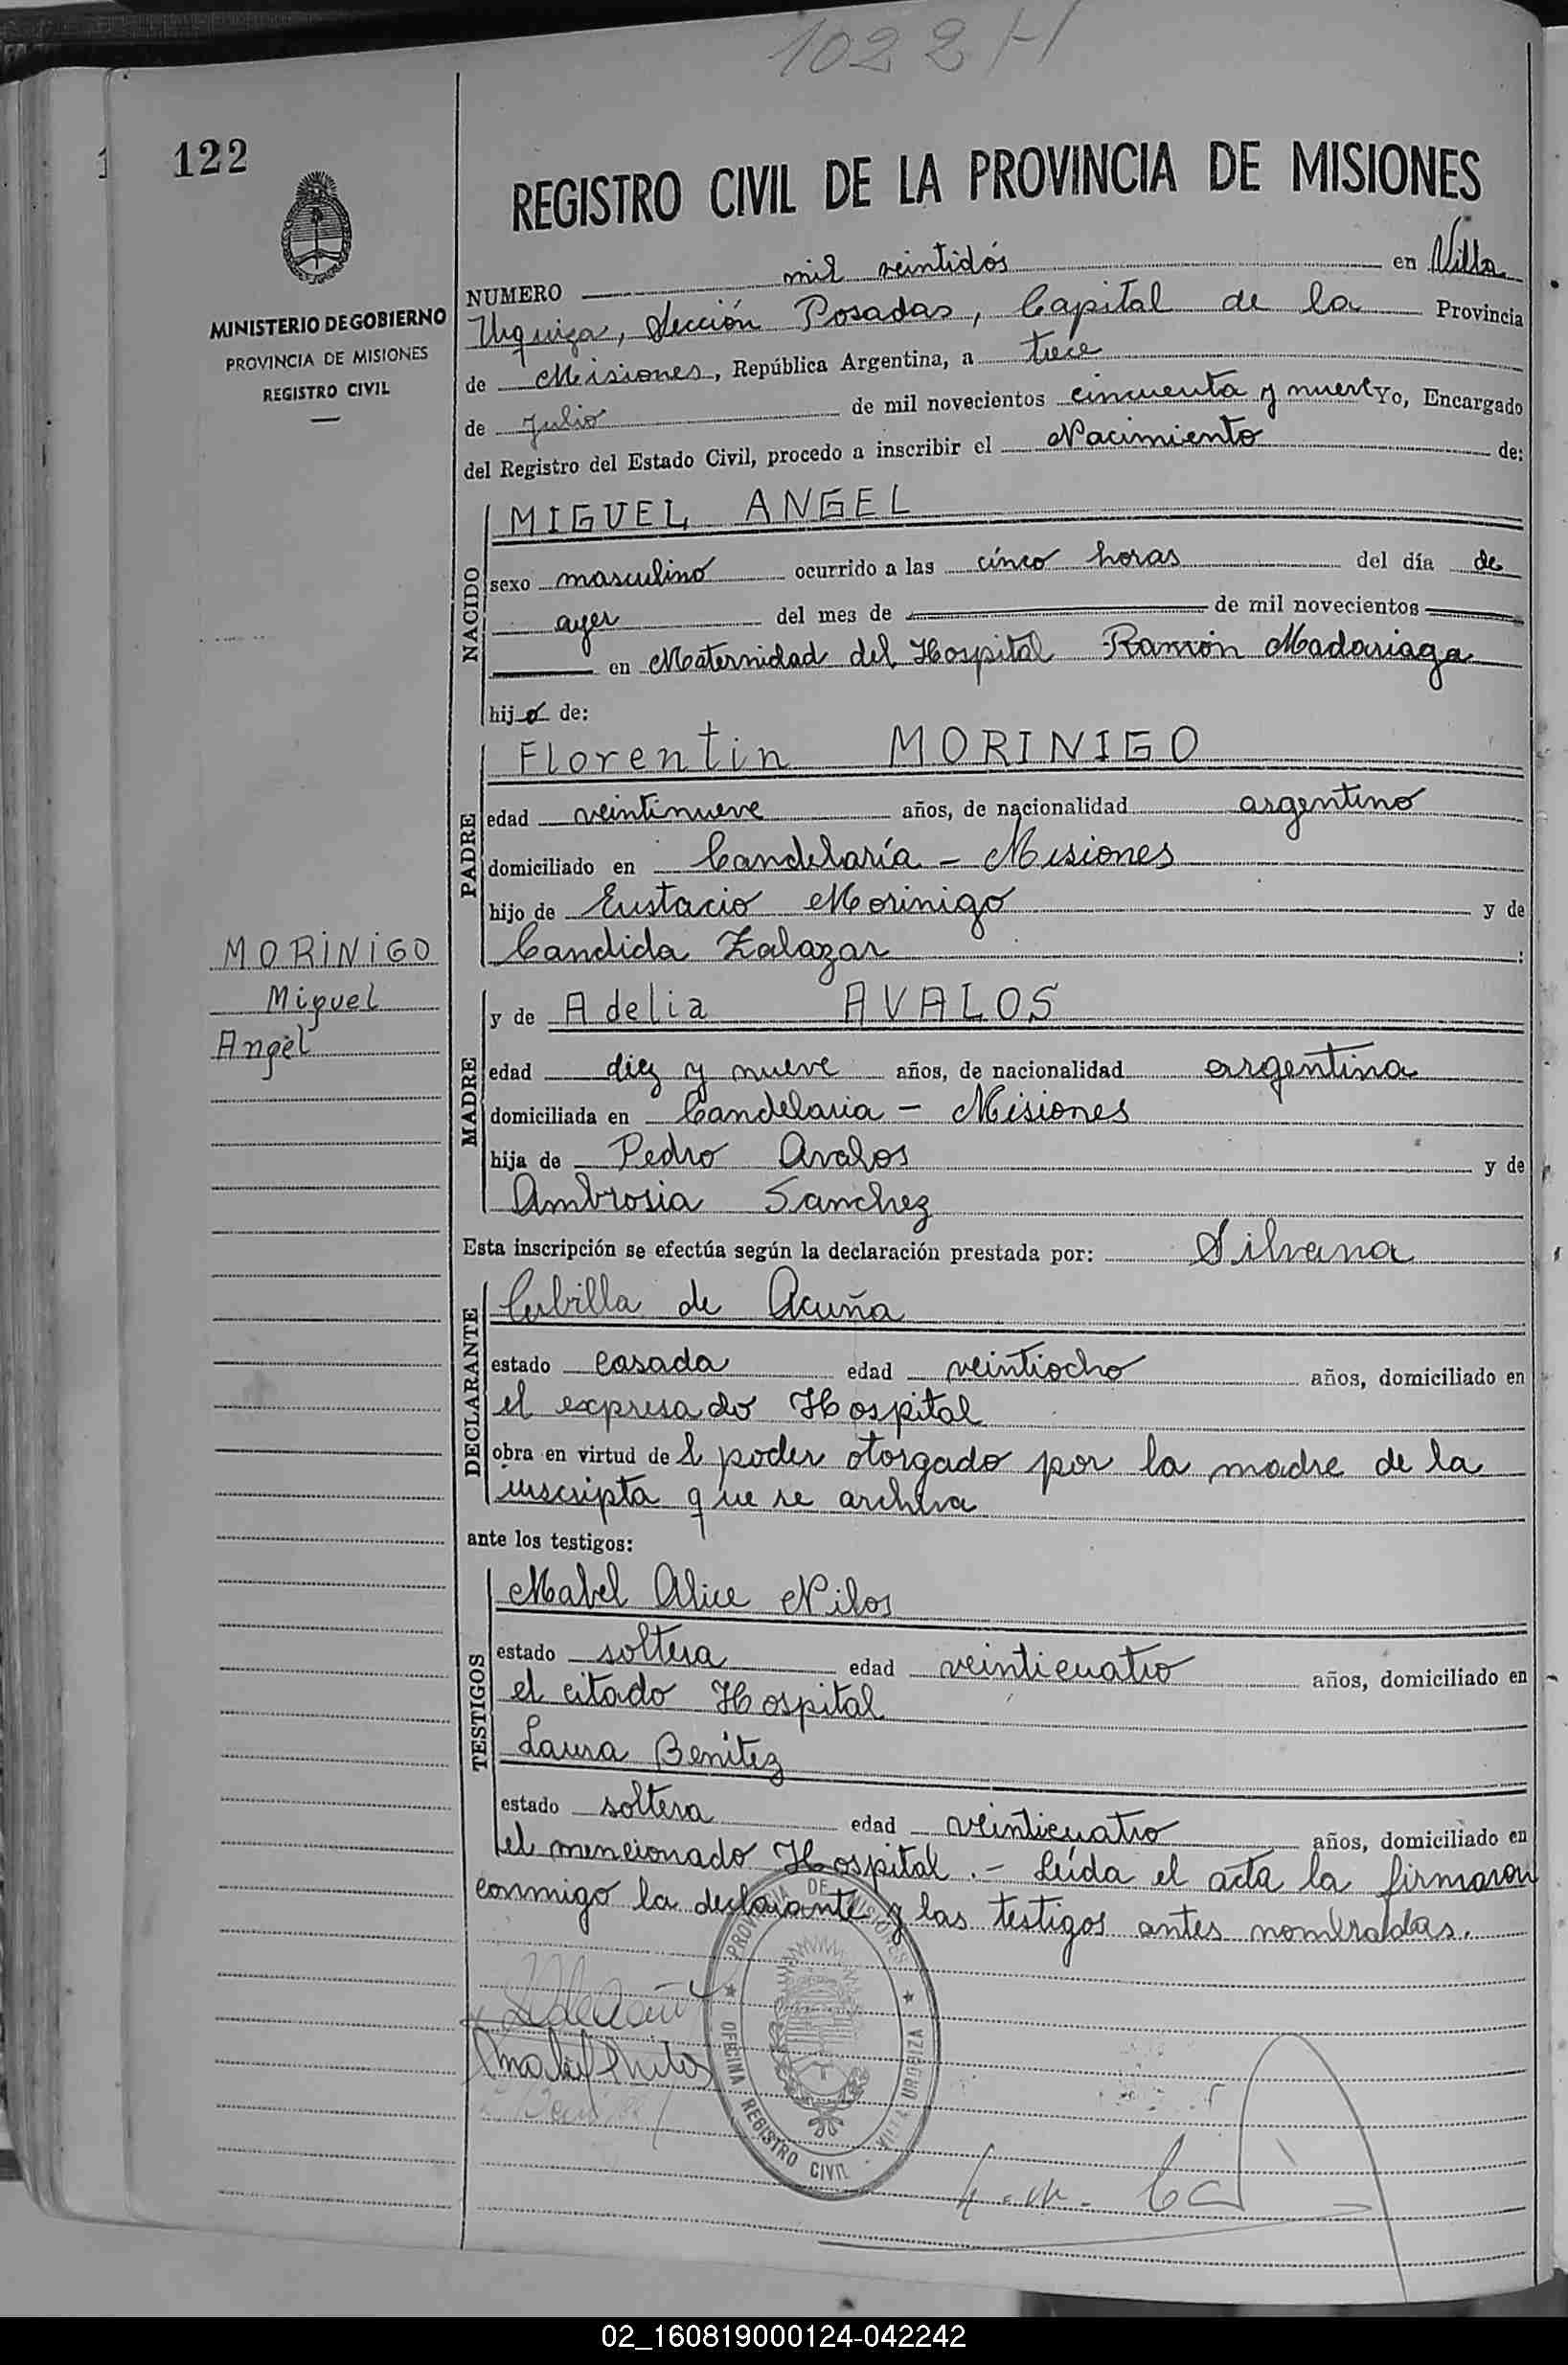 1022H
122
REGISTRO CIVIL DE LA PROVINCIA DE MISIONES
MINISTERIO DE GOBIERNO
PROVINCIA DE MISIONES
REGISTRO CIVIL
NUMERO mil veintidós en Villa
Urquiza, Sección Posadas, Capital de la Provincia
de Misiones, República Argentina, a trece
de Julio de mil novecientos cincuenta y nueve Yo, Encargado
del Registro del Estado Civil, procedo a inscribir el Nacimiento de:
NACIDO
MIGUEL ANGEL
sexo masculino ocurrido a las cinco horas del día de
ayer del mes de de mil novecientos
en Maternidad del Hospital Ramón Madariaga
hijo de:
PADRE
Florentin MORINIGO
edad veintinueve años, de nacionalidad argentino
domiciliado en Candelaría - Misiones
hijo de Eustacio Morinigo y de
Candida Zalazar :
MORINIGO
Miguel
Angel
MADRE
y de Adelia AVALOS
edad diez y nueve años, de nacionalidad argentina
domiciliada en Candelaria - Misiones
hija de Pedro Avalos y de
Ambrosia Sanchez
Esta inscripción se efectúa según la declaración prestada por: Silvana
DECLARANTE
Cubilla de Acuña
estado casada edad veintiocho años, domiciliado en
el expresado Hospital
obra en virtud del poder otorgado por la madre de la
inscripta que se archiva
ante los testigos:
TESTIGOS
Mabel Alice Nilos
estado soltera edad veinticuatro años, domiciliado en
el citado Hospital
Laura Benitez
estado soltera edad veinticuatro años, domiciliado en
el mencionado Hospital .- Leída el acta la firmaron
conmigo la declarante y las testigos antes nombradas.
PROVINCIA DE MISIONES
OFICINA REGISTRO CIVIL - VILLA URQUIZA
02_160819000124-042242